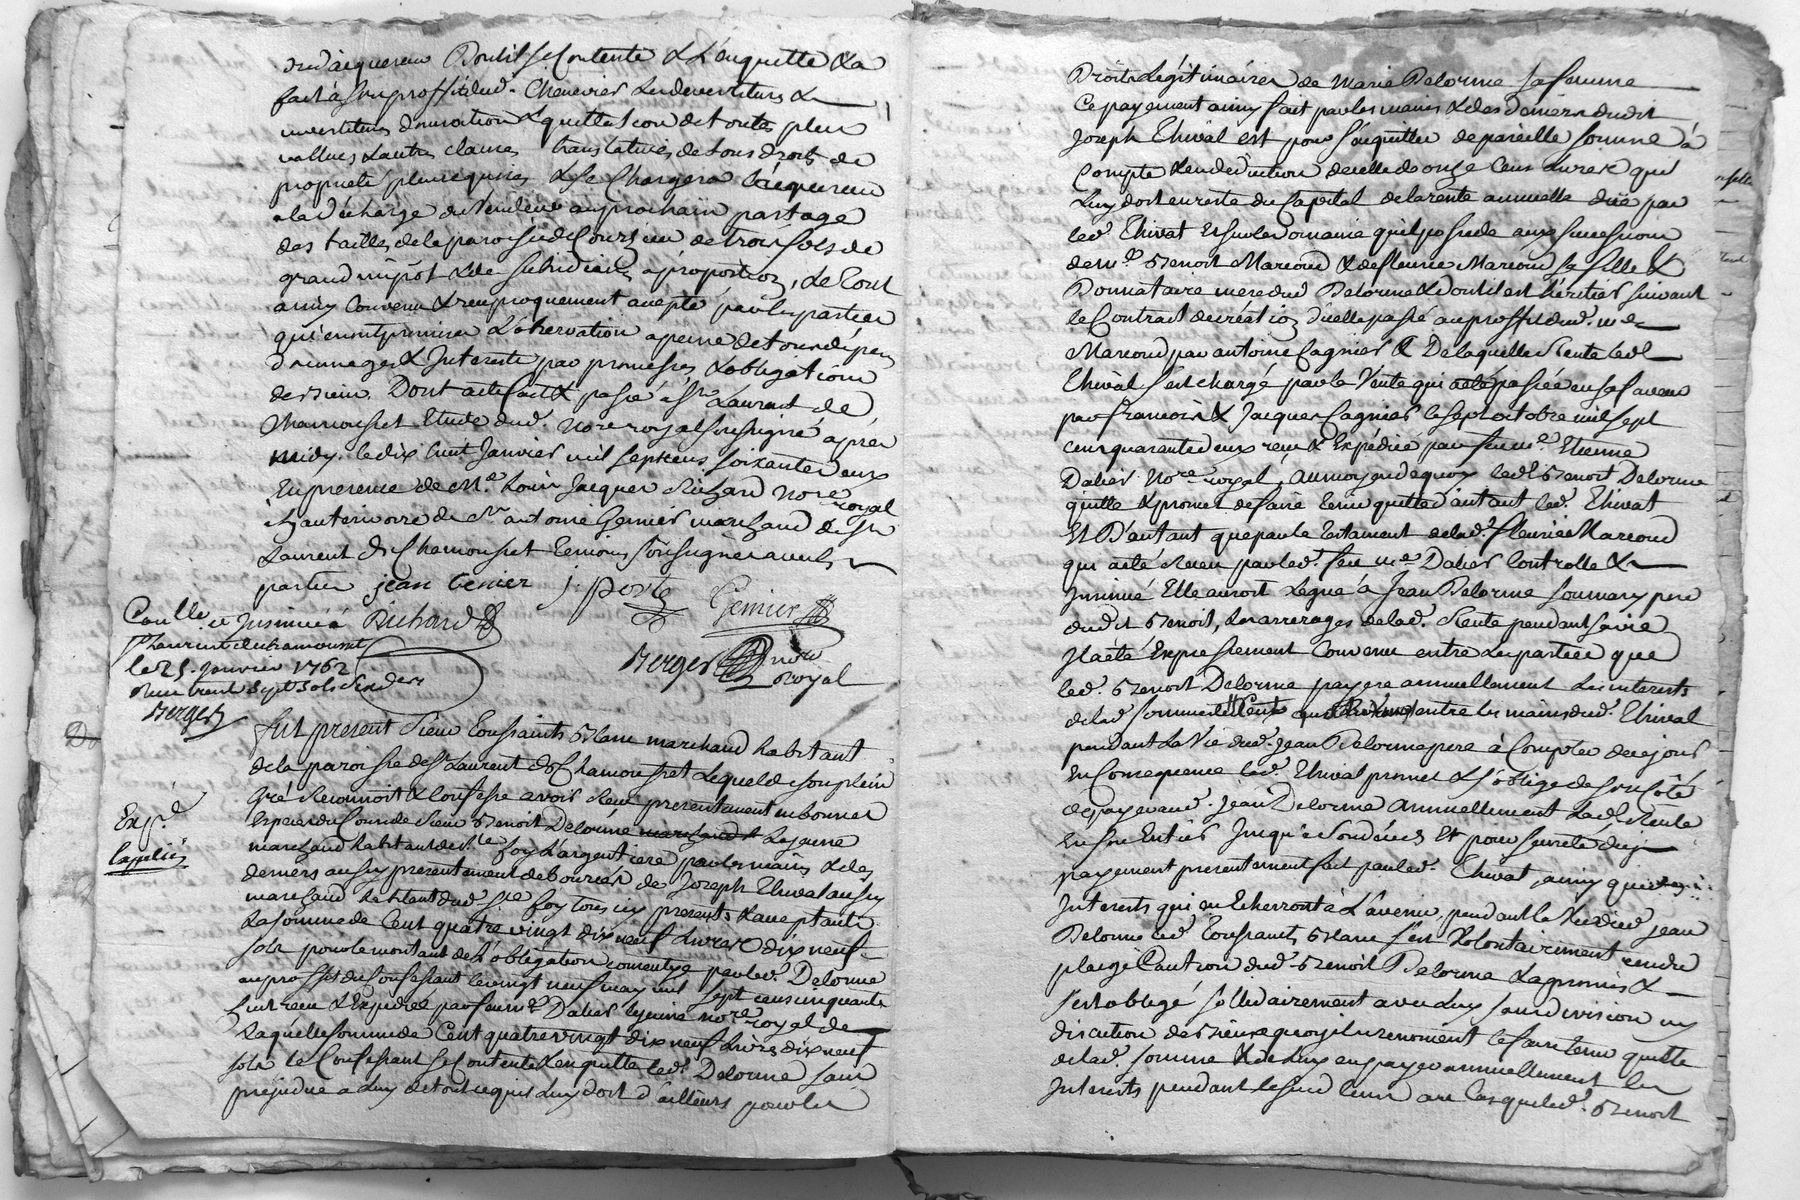 dud. acquereur Dont il se Contente & L'enquitte & a
fait à son proffit led. Chenevier Les devestitures &
investitures donnation & quittation de toutes plus
vallues & autres clauses translatives de tous droits de
propriété plus requises & se Chargera L'acquereur
a la décharge du Vendeur au prochain partage
des tailles de la paroisse de Courzieu de trois sols de
grand impôt & de subsidiaire a proportion, Le tout
ainsy Convenu & reciproquement accepté par les parties
qui en ont promises L'observation a peine de tous dépens
dommages & Interests par promesses & obligations
de biens. Dont acte fait & passé à St. Laurent de
Chamousset Etude dud. Nore royal soussigné après
midy. le dix huit Janvier mil sept cens soixante deux
En presence de Me. Louis Jacques Richard Nore royal
à hauterivoire & de Sr. antoine Genier marchand de St.
Laurent de Chamousset temoins soussignés avec les
parties jean tenier j. poste Genier
Conllé. et Insinué à Richard
St. Laurent de Chamousset
le 25. Janvier 1762 Berger nore royal
Reçu trent sept sols six den.
Berger
fut present Sieur Toussaints Blanc marchand habitant
de la paroisse de St. Laurent de Chamousset Lequel de son plein
Expé. gré Reconnoit & Confesse avoir Reçu presentement en bonnes
Especes du Cours de Sieur Benoit Delorme marchand Le jeune
marchand habitant de Ste. foy L'argentiere par les mains & des
deniers aussy presentement deboursés de Joseph Thivat aussy
marchand habitant dud. Ste. foy tous icy presents & acceptants
La somme de Cent quatre vingt dix neuf Livres dix neuf
sols pour le montant de L'obligation consentye par led. Delorme
au proffit du Confessant le vingt neuf may mil sept cens cinquante
huit reçu & Expediée par feu me. Dalier le jeune nore. royal de
Laquelle somme de Cent quatre vingt dix neuf Livres dix neuf
sols le Confessant se Contente & en quitte led. Delorme sans
préjudice a Luy de tout ce qu'il Luy doit d'ailleurs pour les
Droits Légitimaires de Marie Delorme sa femme
Ce payement ainsy fait par les mains & des deniers dudit
Joseph Thivat est pour s'acquitter de pareille somme à
Compte & en déduction de celle de onze Cens Livres qu'il
Luy doit en reste du Capital de la rente annuelle düe par
led. Thivat Et sur le domaine qu'il possede aux successions
de me. Benoit Marcoud & de fleurie Marcoud sa fille &
Donnataire mere dud. Delorme & dont il est héritier suivant
le Contract de création d'icelle passé au proffit dud. me.
Marcoud par antoine Cagnier & De laquelle Rente led.
Thivat s'est chargé par la Vente qui a été passée en sa faveur
par francois & Jacques Cagnier le sept octobre mil sept
cens quarante deux reçu & Expédiée par feu me. Etienne
Dalier Nore. royal, au moyen de quoy led. Benoit Delorme
quitte & promet de faire tenir quitte d'autant led. Thivat
Et D'autant que par le testament de lad. fleurie Marcoud
qui a été Receu par led. feu me. Dalier Controllé &
Insinué Elle auroit Legué à Jean Delorme son mary pere
dudit Benoit, Les arrerages de lad. Rente pendant sa vie
Il a été Expressement Convenu entre Les parties que
led. Benoit Delorme payera annuellement Les interests
de lad. somme de Cent entre les mains dud. Thivat
pendant La Vie dud. Jean Delorme pere à Compter de ce jour
En Consequence led. Thivat promet & s'oblige de son côté
de payer aud. Jean Delorme annuellement Lad. Rente
En son Entier Jusqu'a son décés Et pour sureté du
payement presentement fait par led. Thivat, ainsy que des
Interests qui en Echerront à L'avenir, pendant la Vie dud. Jean
Delorme led. Toussaints Blanc s'est Volontairement rendu
pleige Caution dud. Benoit Delorme & a promis &
s'est obligé solidairement avec Luy sans division ny
discution de biens a quoy ils renoncent de faire tenir quitte
de lad. somme & de Luy en payer annuellement les
Interests pendant le susd. tems au Cas que led. Benoit